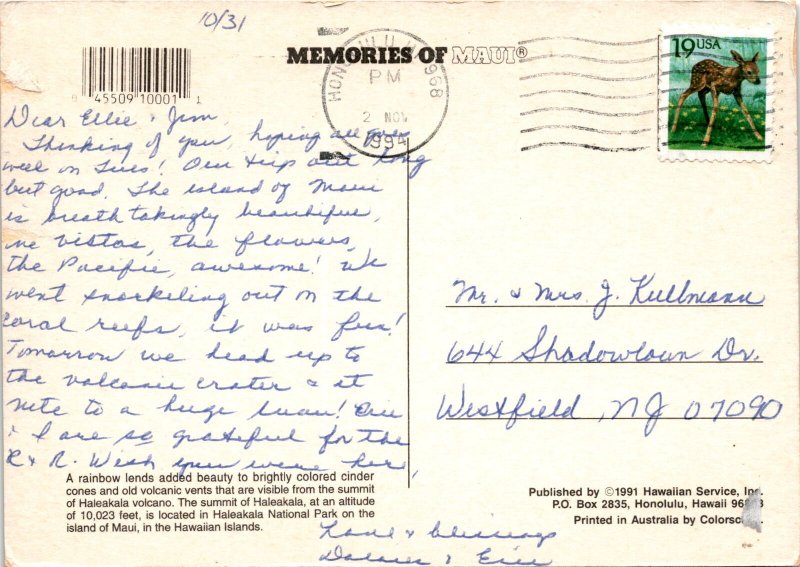 10/31
MEMORIES OF MAUI®
45509 10001 1
HONOLULU 968
PM
2 NOV
1994
19 USA
Dear Ellie & Jim,
Thinking of you, hoping all goes
well on Tues! Our trip out long
but good. The island of Maui
is breathtakingly beautiful,
the vistas, the flowers,
the Pacific, awesome! We
went snorkeling out on the
coral reefs, it was fun!
Tomorrow we head up to
the volcanic crater & at
nite to a huge luau! Eric
& I are so grateful for the
R & R. Wish you were here,
Love & blessings
Dolores & Eric
Mr. & Mrs. J. Kullmann
644 Shadowlawn Dr.
Westfield, NJ 07090
A rainbow lends added beauty to brightly colored cinder
cones and old volcanic vents that are visible from the summit
of Haleakala volcano. The summit of Haleakala, at an altitude
of 10,023 feet, is located in Haleakala National Park on the
island of Maui, in the Hawaiian Islands.
Published by ©1991 Hawaiian Service, Inc.
P.O. Box 2835, Honolulu, Hawaii
Printed in Australia by